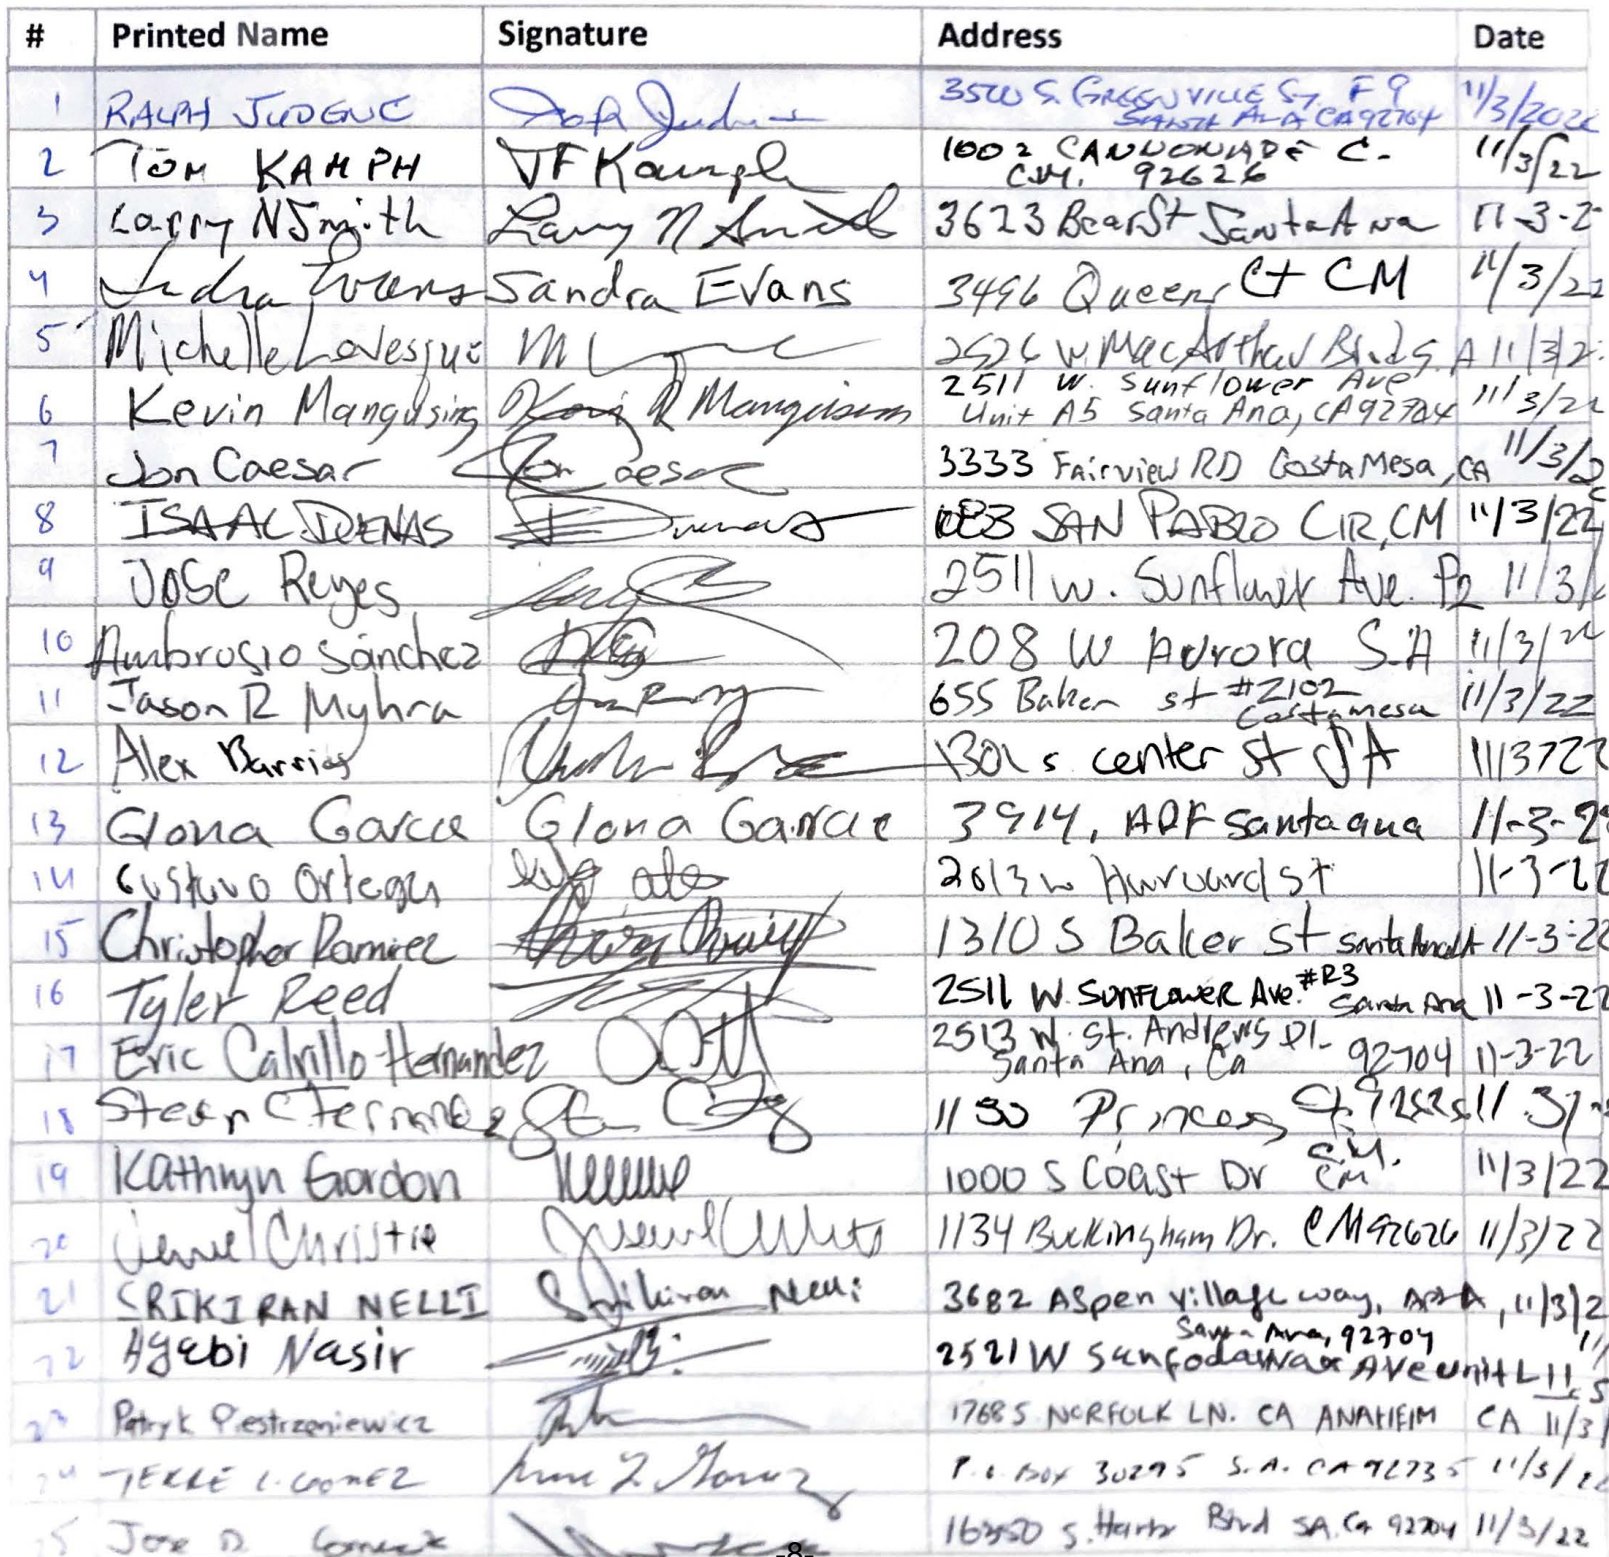 # Printed Name Signature Address Date
1 RALPH JUDENC 3500 S. GREENVILLE St F9 11/3/2022
SANTA ANA CA 92704
2 TOM KAMPH JF Kamph 1002 CANNONADE C. 11/3/22
C.M. 92626
3 Larry N Smith Larry N Smith 3623 Bear St Santa Ana 11-3-2
4 Sandra Evans Sandra Evans 3496 Queens Ct CM 11/3/22
5 Michelle Lovesque W. MacArthur Blvd A 11/3/2
6 Kevin Mangusing 2511 W. Sunflower Ave 11/3/22
Unit A5 Santa Ana, CA 92704
7 Jon Caesar Jon Caesar 3333 Fairview RD Costa Mesa, CA 11/3/2
8 ISAAC DUENAS SAN PABLO CIR, CM 11/3/22
9 Jose Reyes 2511 W. Sunflower Ave. P2 11/3/
10 Ambrosio Sánchez 208 W Aurora S.A 11/3/22
11 Jason R Myhra 655 Baker st #2102 11/3/22
Costa mesa
12 Alex Barrios s center st SA 11/3/22
13 Gloria Garcia Gloria Garcia 3914, ADF santa ana 11-3-2
14 Gustavo Ortega 2013 w Harvard st 11-3-22
15 Christopher Ramirez 1310 S Baker St Santa Ana CA 11-3-22
16 Tyler Reed 2511 W. SUNFLOWER Ave. #R3 11-3-22
Santa Ana
17 Eric Calvillo-Hernandez 2513 W. St. Andrews Pl. 11-3-22
Santa Ana, Ca 92704
18 C Fernandez 1130 Princess Ct. 11.3/
C.M.
19 Kathryn Gordon 1000 S Coast Dr CM 11/3/22
20 Christie 1134 Buckingham Dr. CM 92626 11/3/22
21 SRIKIRAN NELLI Srikiran Nelli 3682 Aspen village way, Apt A, 11/3/2
Santa Ana, 92704
22 Ayebi Nasir 2521 W Ave unit L 11
23 Patryk Piestrzeniewicz 1768 S NORFOLK LN. CA ANAHEIM CA 11/3/
24 TERRE L. GOMEZ P.O. Box 30295 S.A. CA 92735 11/3/22
25 Jose R S. Harbor Blvd SA. Ca 92704 11/3/22
-8-